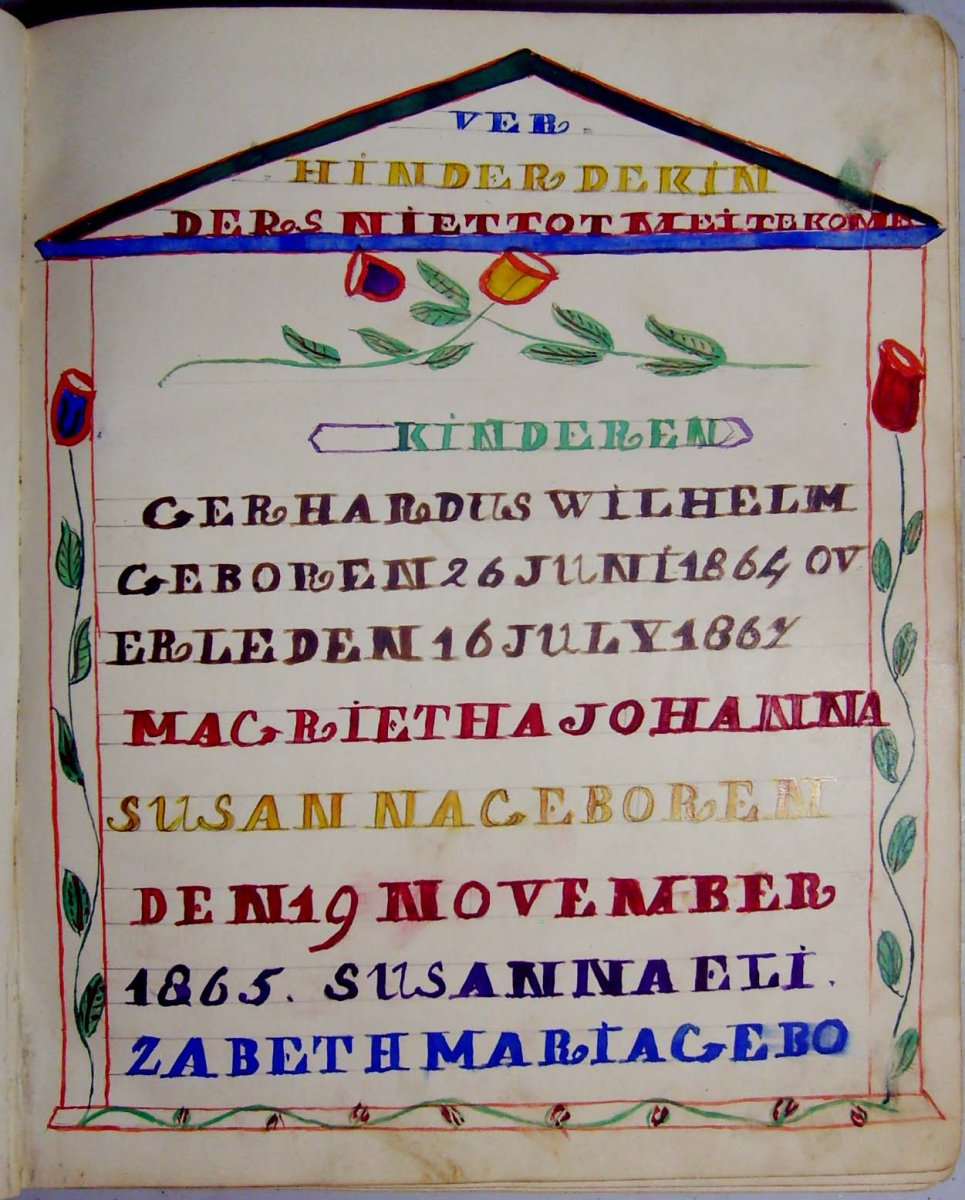 VER
HINDER DE KIN
DERS NIET TOT MEI TE KOMN
KINDEREN
GERHARDUS WILHELM
GEBOREN 26 JUNI 1864 OV
ERLEDEN 16 JULY 1864
MAGRIETHA JOHANNA
SUSANNA GEBOREN
DEN 19 NOVEMBER
1865. SUSANNA ELI.
ZABETH MARIA GEBO